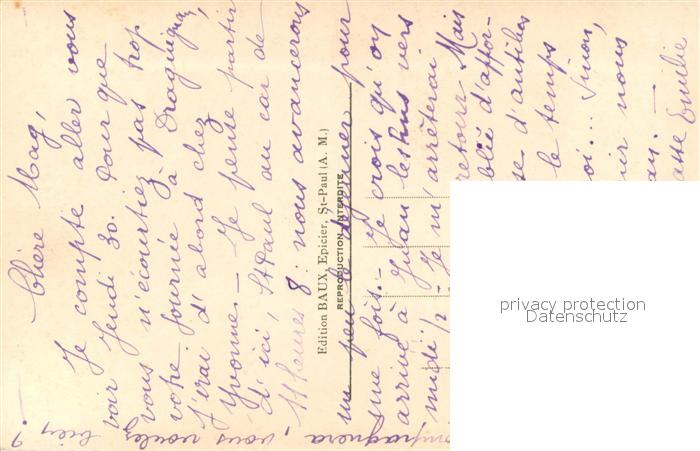 Chère Mag,
Je compte aller vous
voir Jeudi 30. Pour que
vous n'écourtiez pas trop
votre journée à Draguignan,
j'irai d'abord chez
Yvonne. - Je pense partir
d'ici, St Paul au car de
11 heures 8 : nous avancerons
un peu le déjeuner pour
une fois. - Je crois qu'on
arrive à Juan les Pins vers
midi 1/2 - Je m'arrêterai
retour. Mais
blié d'appor-
se d'antibes
le temps
oi... Sinon,
ir nous
an. -
Emilie
mpagnera, vous voulez bien ?
Edition BAUX, Epicier, St-Paul (A. M.)
REPRODUCTION INTERDITE
privacy protection
Datenschutz